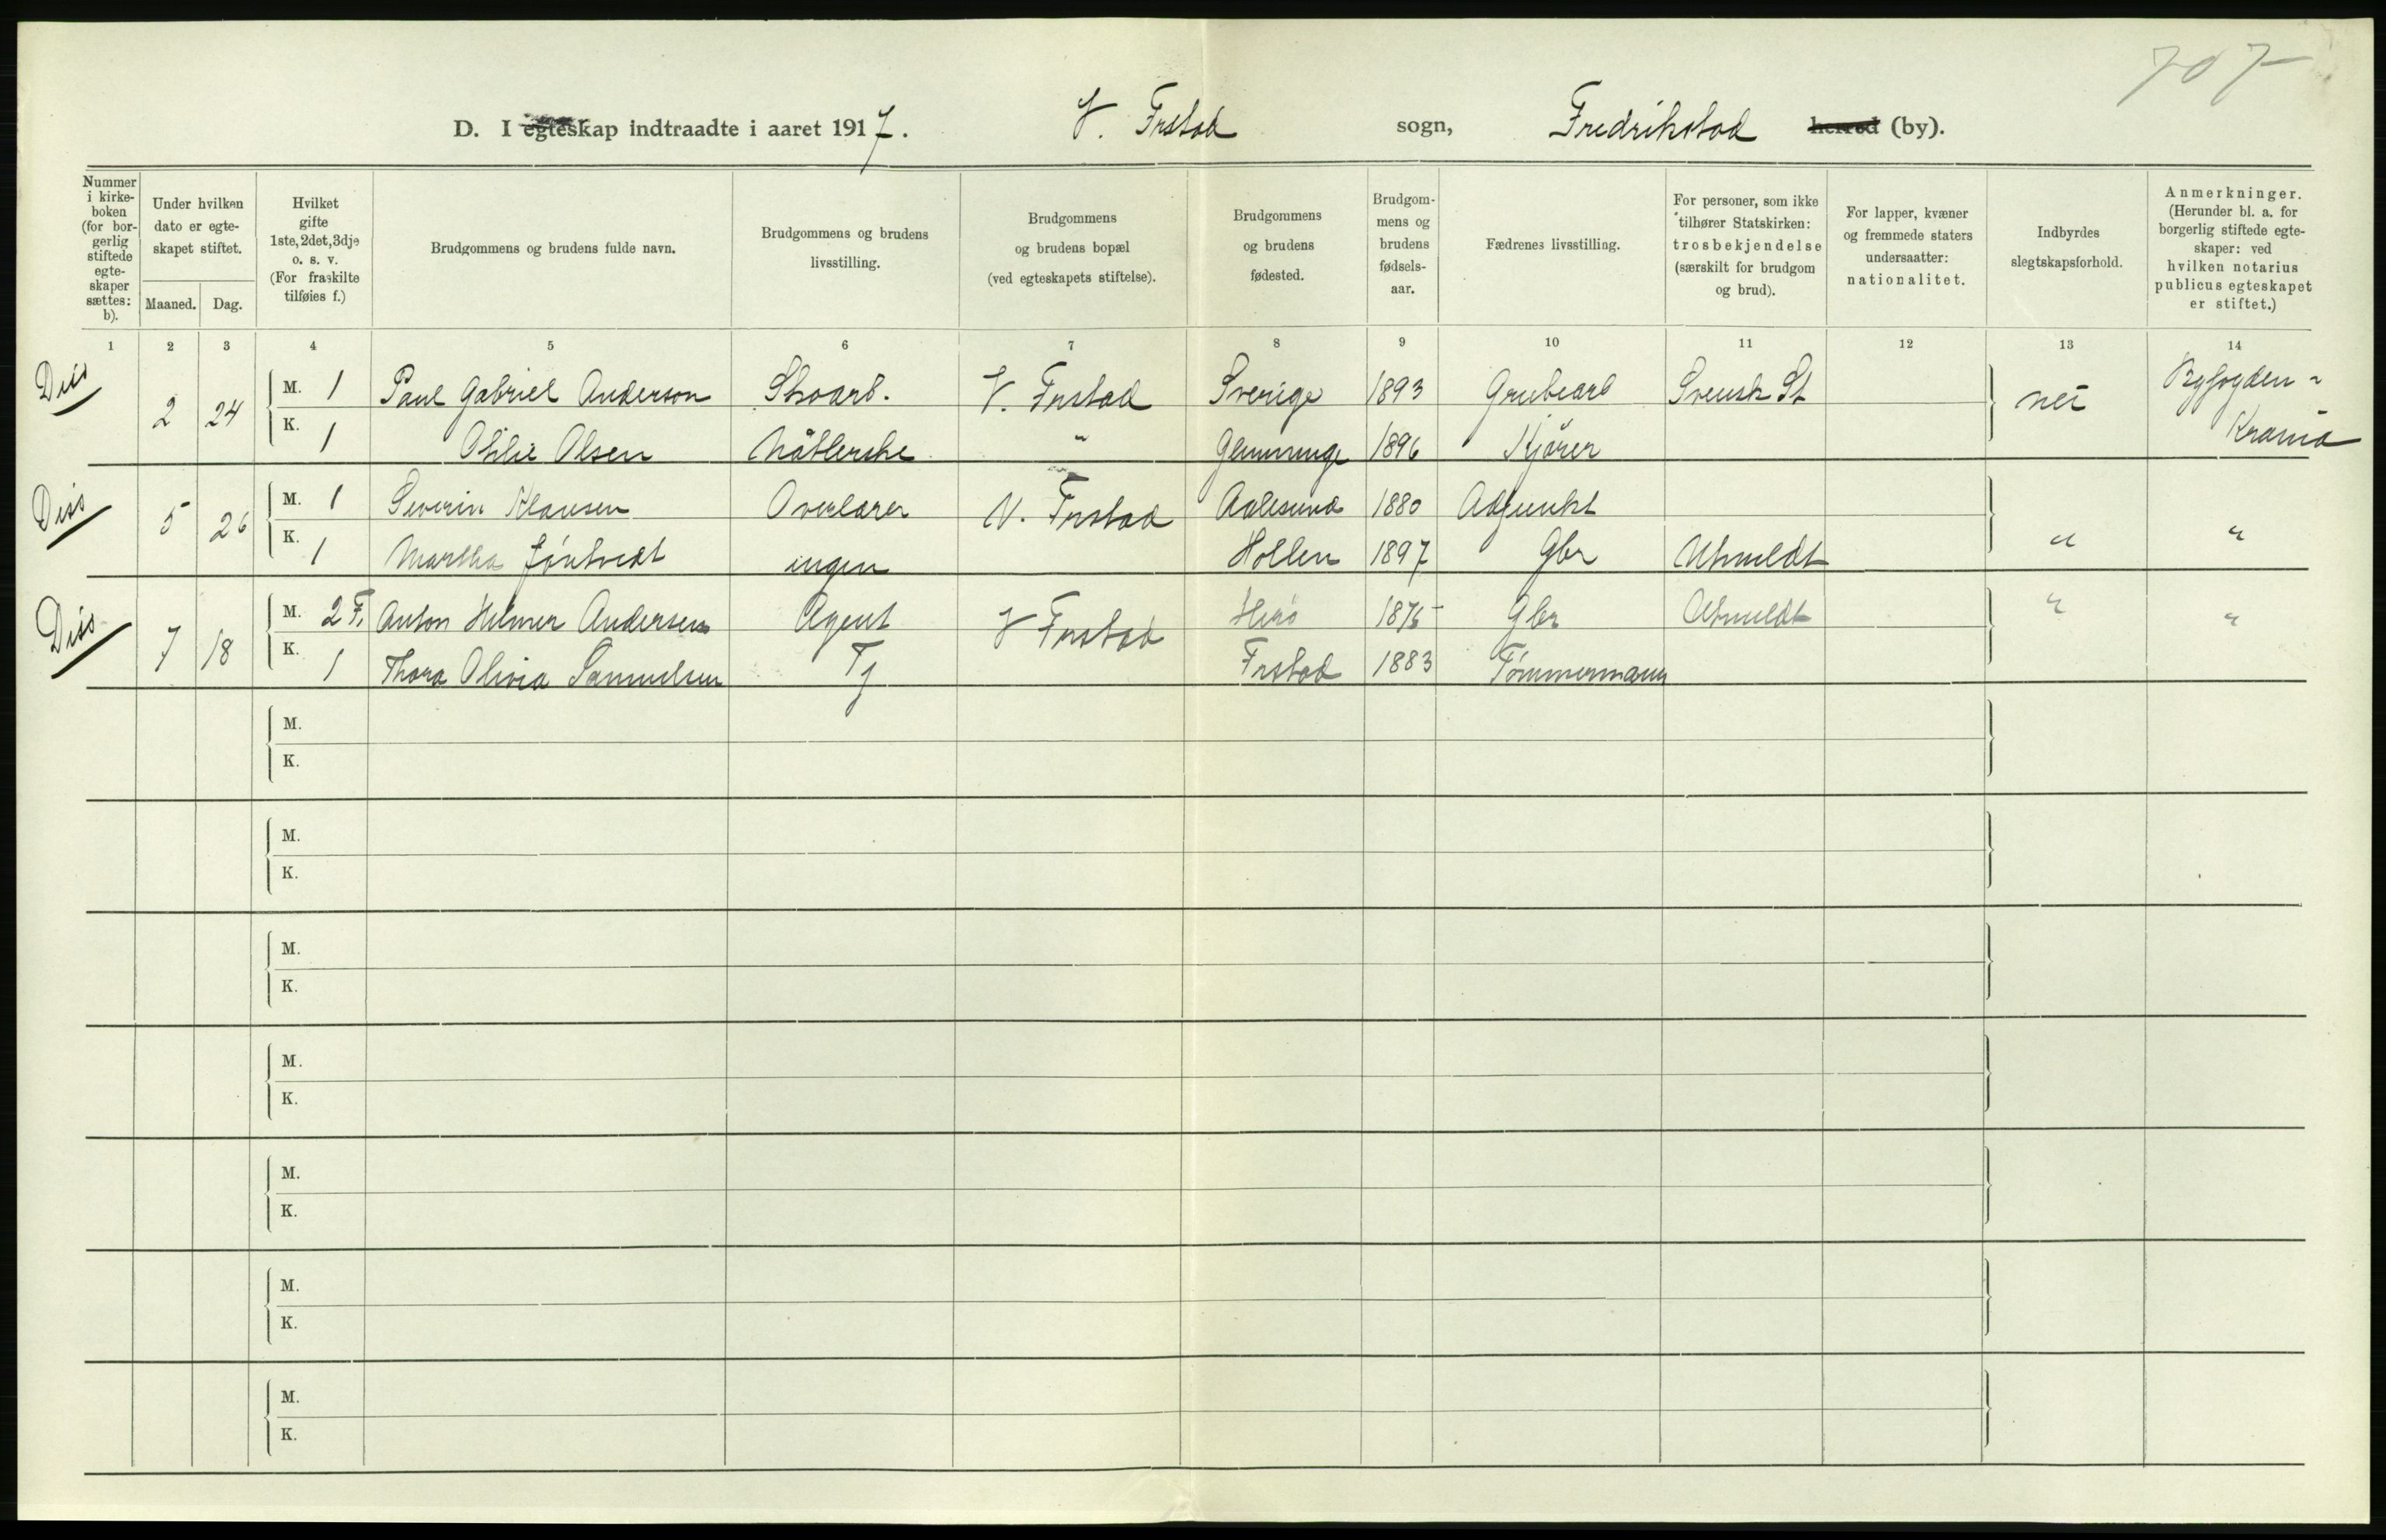 707
D. I egteskap indtraadte i aaret 1917. V. Frstad sogn, Fredrikstad herred (by).
Nummer i kirkeboken (for borgerlig stiftede egteskaper sættes: b).
Under hvilken dato er egteskapet stiftet.
Maaned. Dag.
Hvilket gifte 1ste, 2det, 3dje o. s. v. (For fraskilte tilføies f.)
Brudgommens og brudens fulde navn.
Brudgommens og brudens livsstilling.
Brudgommens og brudens bopæl (ved egteskapets stiftelse).
Brudgommens og brudens fødested.
Brudgommens og brudens fødselsaar.
Fædrenes livsstilling.
For personer, som ikke tilhører Statskirken: trosbekjendelse (særskilt for brudgom og brud).
For lapper, kvæner og fremmede staters undersaatter: nationalitet.
Indbyrdes slegtskapsforhold.
Anmerkninger. (Herunder bl. a. for borgerlig stiftede egteskaper: ved hvilken notarius publicus egteskapet er stiftet.)
1 2 3 4 5 6 7 8 9 10 11 12 13 14
Diss 2 24 M. 1 Paul Gabriel Anderson Skoarb. V. Frstad Sverige 1893 Grubearb Svensk St nei Byfogden -
K. 1 Othilie Olsen Nåtlerske " Glemminge 1896 Kjører Krania
Diss 5 26 M. 1 Severin Klausen Overlærer V. Frstad Aalesund 1880 Adjunkt
K. 1 Martha ingen Hollen 1897 Gbr Utmeldt " "
Diss 7 18 M. 2 F. Anton Helmer Andersen Agent V Frstad Herö 1875 Gbr Utmeldt " "
K. 1 Thora Olivia Samuelsen Tj Frstad 1883 Tømmermann
M.
K.
M.
K.
M.
K.
M.
K.
M.
K.
M.
K.
M.
K.